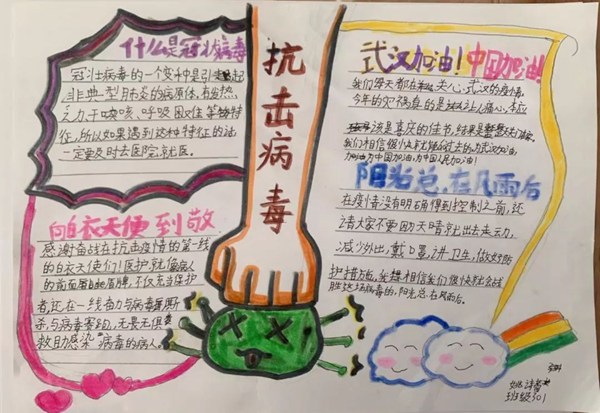 什么是冠状病毒
冠壮病毒的一个变种是引起
非典型肺炎的病原体，有发热
乏力干咳嗽、呼吸困难等特
征，所以如果遇到这种特征的话
一定要及时去医院就医。
向白衣天使到敬
感谢奋战在抗击疫情的第一线
的白衣天使们！医护就像病人
的前面盾牌，不仅要保护
者，还在一线奋力与病毒厮
杀，与病毒赛跑，无畏无惧
救助感染病毒的病人。
抗击病毒
武汉加油！中国加油！
我们每天都在关心，武汉的疫情，
今年的灾祸真的是让人痛心，本应
该是喜庆的佳节，结果是
我们相信很快就能过去的，为武汉加油
为中国加油，为中国人民加油！
阳光总在风雨后
在疫情没有明确得到控制之前，还
请大家不要因天晴就出去走动，
减少外出，戴口罩，讲卫生，做好防
护措施，我相信我们很快就会战
胜这场病毒的，阳光总在风雨后。
班级301